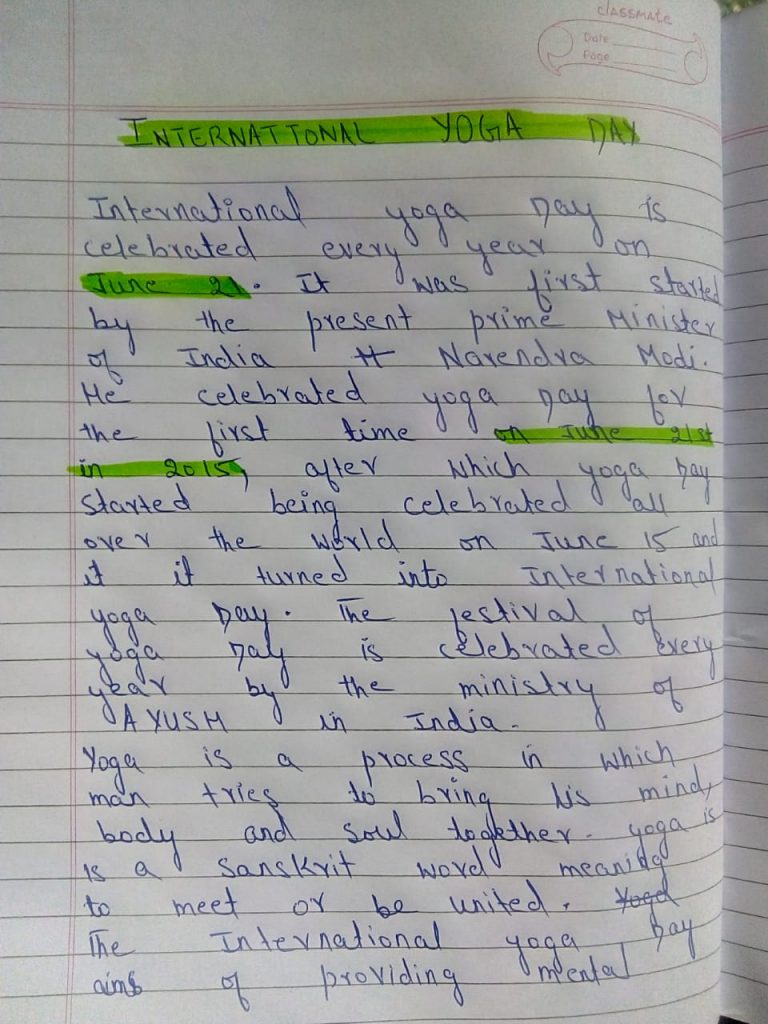 classmate
Date
Page
INTERNATIONAL YOGA DAY
International yoga Day is
celebrated every year on
June 21. It was first started
by the present prime Minister
of India It Narendra Modi.
He celebrated yoga Day for
the first time on June 21st
in 2015, after which yoga Day
started being celebrated all
over the world on June 15 and
it it turned into International
yoga Day. The festival of
yoga Day is celebrated every
year by the ministry of
AYUSH in India.
Yoga is a process in which
man tries to bring his mind,
body and soul together. yoga is
is a sanskrit word meaning
to meet or be united. Yoga
The International yoga Day
aims of providing mental